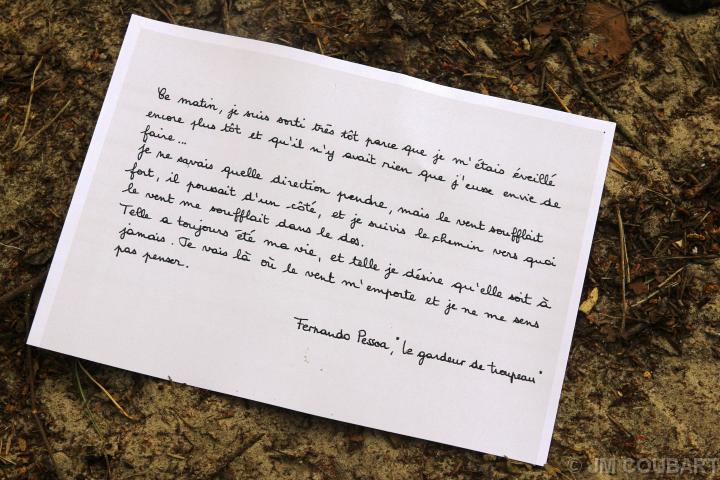 Ce matin, je suis sorti très tôt parce que je m'étais éveillé
encore plus tôt et qu'il n'y avait rien que j'eusse envie de
faire...
Je ne savais quelle direction prendre, mais le vent soufflait
fort, il poussait d'un côté, et je suivis le chemin vers quoi
le vent me soufflait dans le dos.
Telle a toujours été ma vie, et telle je désire qu'elle soit à
jamais. Je vais là où le vent m'emporte et je ne me sens
pas penser.
Fernando Pessoa, "Le gardeur de troupeau"
© JM COUBART